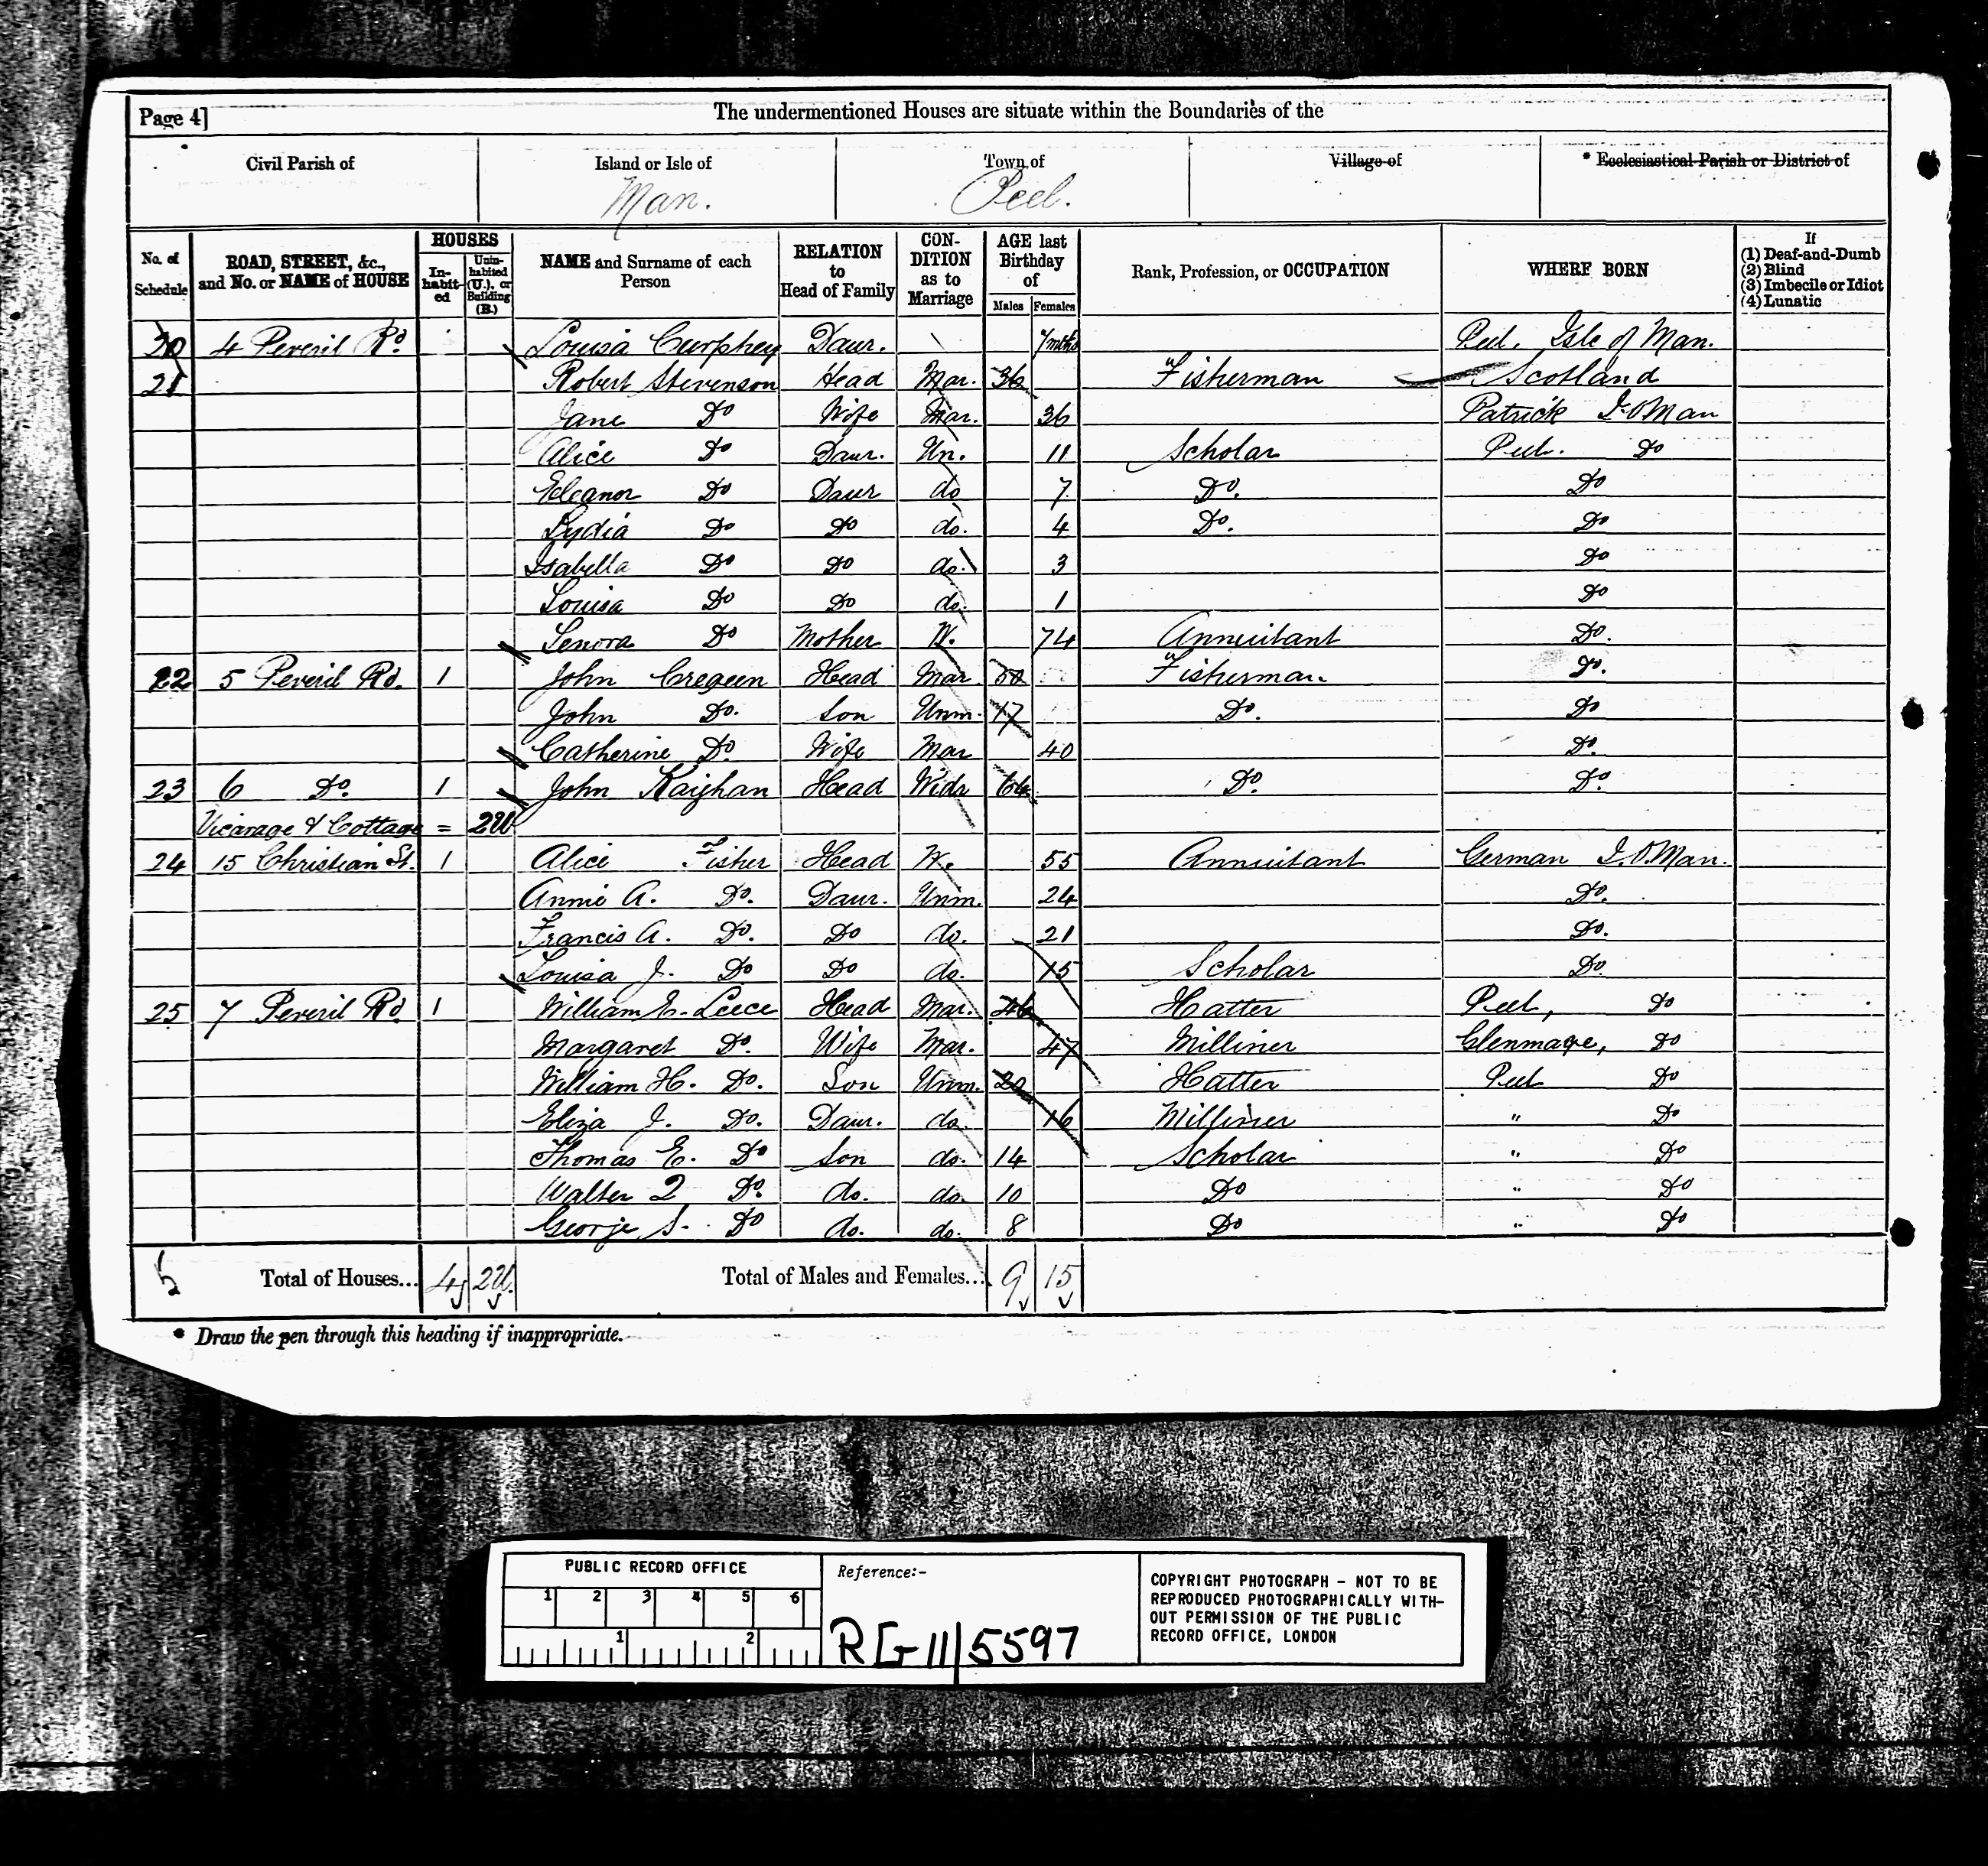 Page 4]
The undermentioned Houses are situate within the Boundaries of the
Civil Parish of
Island or Isle of
Man.
Town of
Peel.
Village of
* Ecclesiastical Parish or District of
No. of Schedule
ROAD, STREET, &c., and No. or NAME of HOUSE
HOUSES
In-habit-ed
Unin-habited (U.), or Building (B.)
NAME and Surname of each Person
RELATION to Head of Family
CON-DITION as to Marriage
AGE last Birthday of
Males
Females
Rank, Profession, or OCCUPATION
WHERE BORN
If
(1) Deaf-and-Dumb
(2) Blind
(3) Imbecile or Idiot
(4) Lunatic
20 4 Peveril Rd. Louisa Curphey Daur. 7 mths Peel. Isle of Man.
21 Robert Stevenson Head Mar. 36 Fisherman Scotland
Jane Do Wife Mar. 36 Patrick I.O Man
Alice Do Daur. Un. 11 Scholar Peel. Do
Eleanor Do Daur do 7 Do. Do
Lydia Do Do do. 4 Do. Do
Isabella Do Do do. 3 Do
Louisa Do Do do. 1 Do
Senora Do Mother W. 74 Annuitant Do.
22 5 Peveril Rd. 1 John Cregeen Head Mar. 50 Fisherman Do.
John Do. Son Unm. 17 Do. Do
Catherine Do. Wife Mar 40 Do.
23 6 Do. 1 John Kaighan Head Widr 64 Do. Do.
Vicarage & Cottage = 2U
24 15 Christian St. 1 Alice Fisher Head W. 55 Annuitant German I.O.Man.
Annie A. Do. Daur. Unm. 24 Do.
Francis A. Do. Do do. 21 Do.
Louisa J. Do Do do. 15 Scholar Do.
25 7 Peveril Rd 1 William E. Leece Head Mar. 46 Hatter Peel, Do
Margaret Do. Wife Mar. 47 Milliner Glenmaye, Do
William H. Do. Son Unm. 20 Hatter Peel Do
Eliza J. Do. Daur. do. 16 Milliner " Do
Thomas E. Do Son do. 14 Scholar " Do
Walter Q Do. do. do. 10 Do " Do
George S. Do do. do. 8 Do " Do
5 Total of Houses... 4 2U. Total of Males and Females... 9 15
* Draw the pen through this heading if inappropriate.
PUBLIC RECORD OFFICE
1 2 3 4 5 6
1 2
Reference:-
RG 11/5597
COPYRIGHT PHOTOGRAPH - NOT TO BE
REPRODUCED PHOTOGRAPHICALLY WITH-
OUT PERMISSION OF THE PUBLIC
RECORD OFFICE, LONDON